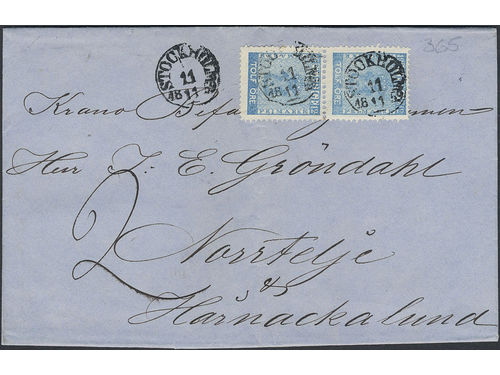 STOCKHOLM
11
11
18
TOLF ÖRE
STOCKHOLM
11
18 11
TOLF ÖRE
STOCKHOLM
11
18 11
365
Krono Befa
Herr J. E. Gröndahl
2
Norrtelje
&
Hårnackalund